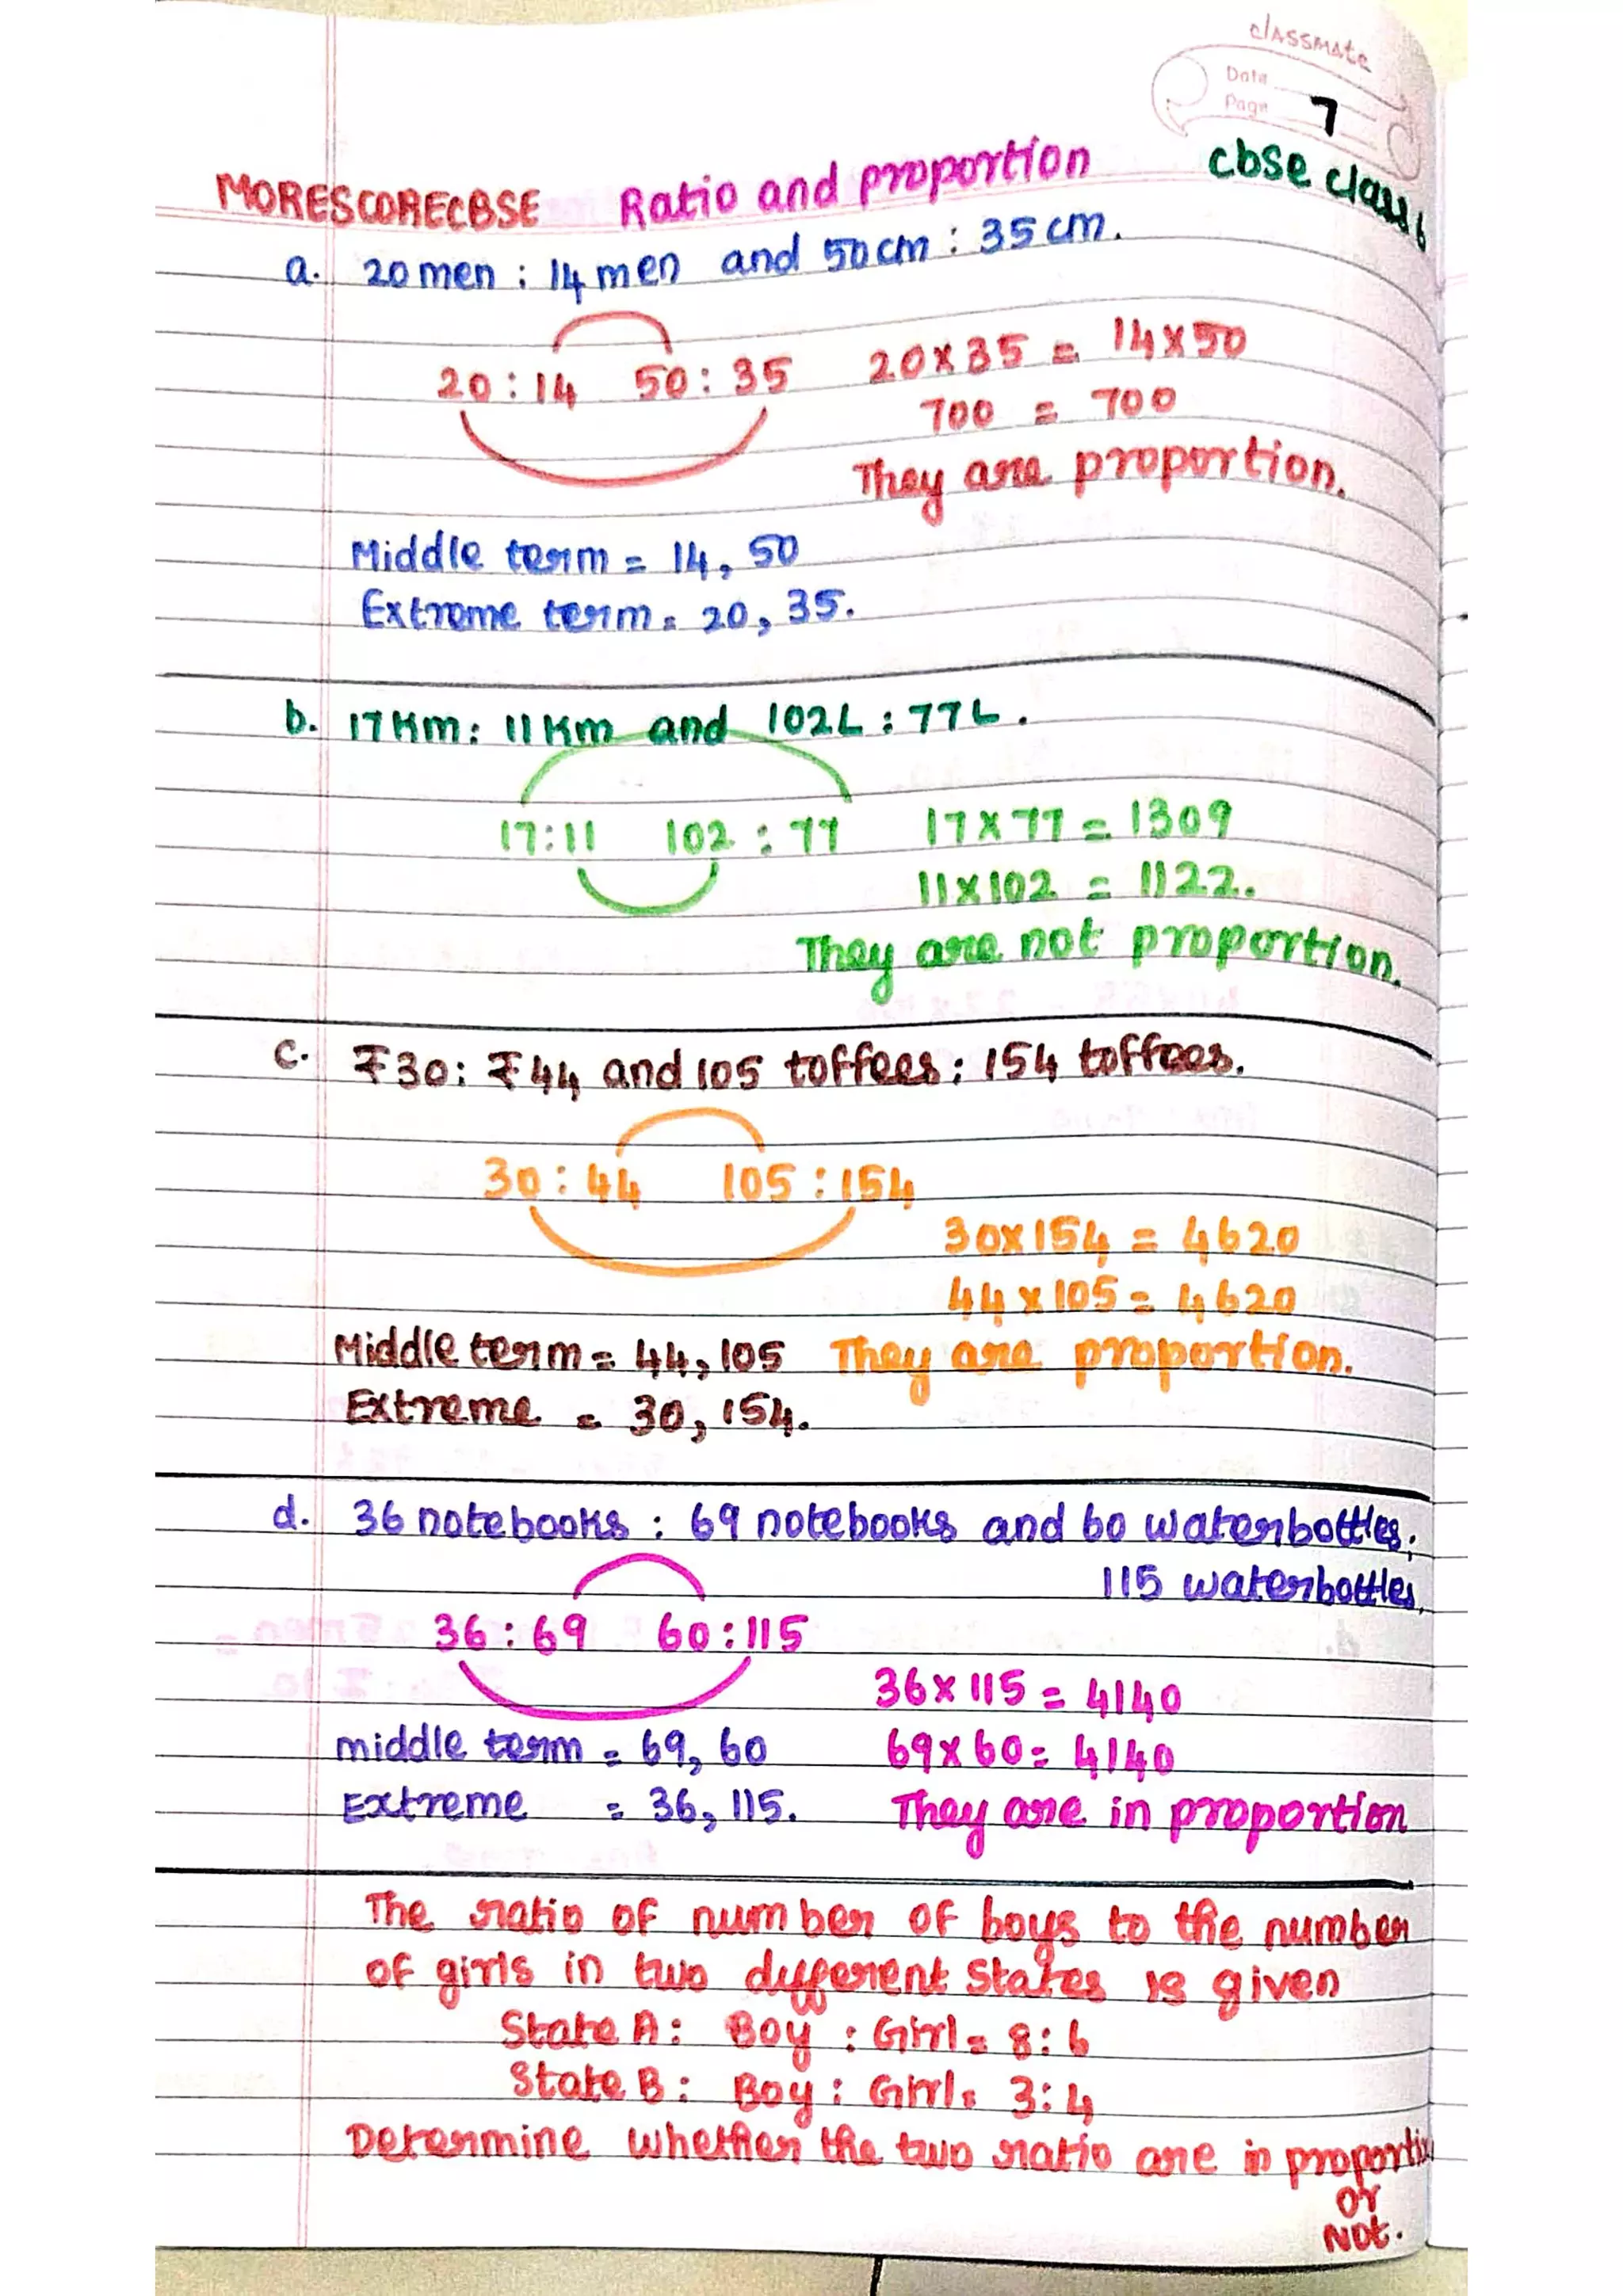 classmate
Date
Page 7
MORESCORECBSE Ratio and proportion cbse class 6
a. 20 men : 14 men and 50 cm : 35 cm.
20 : 14 50 : 35 20 x 35 = 14 x 50
700 = 700
They are proportion.
Middle term = 14, 50
Extreme term = 20, 35.
b. 17 Km : 11 Km and 102 L : 77 L.
17 : 11 102 : 77 17 x 77 = 1309
11 x 102 = 1122.
They are not proportion.
c. ₹30 : ₹44 and 105 toffees : 154 toffees.
30 : 44 105 : 154
30 x 154 = 4620
44 x 105 = 4620
Middle term = 44, 105 They are proportion.
Extreme = 30, 154.
d. 36 notebooks : 69 notebooks and 60 waterbottles :
115 waterbottles.
36 : 69 60 : 115
36 x 115 = 4140
middle term = 69, 60 69 x 60 = 4140
Extreme = 36, 115. They are in proportion
The ratio of number of boys to the number
of girls in two different states is given
State A : Boy : Girl = 8 : 6
State B : Boy : Girl = 3 : 4
Determine whether the two ratio are in
or
Not.